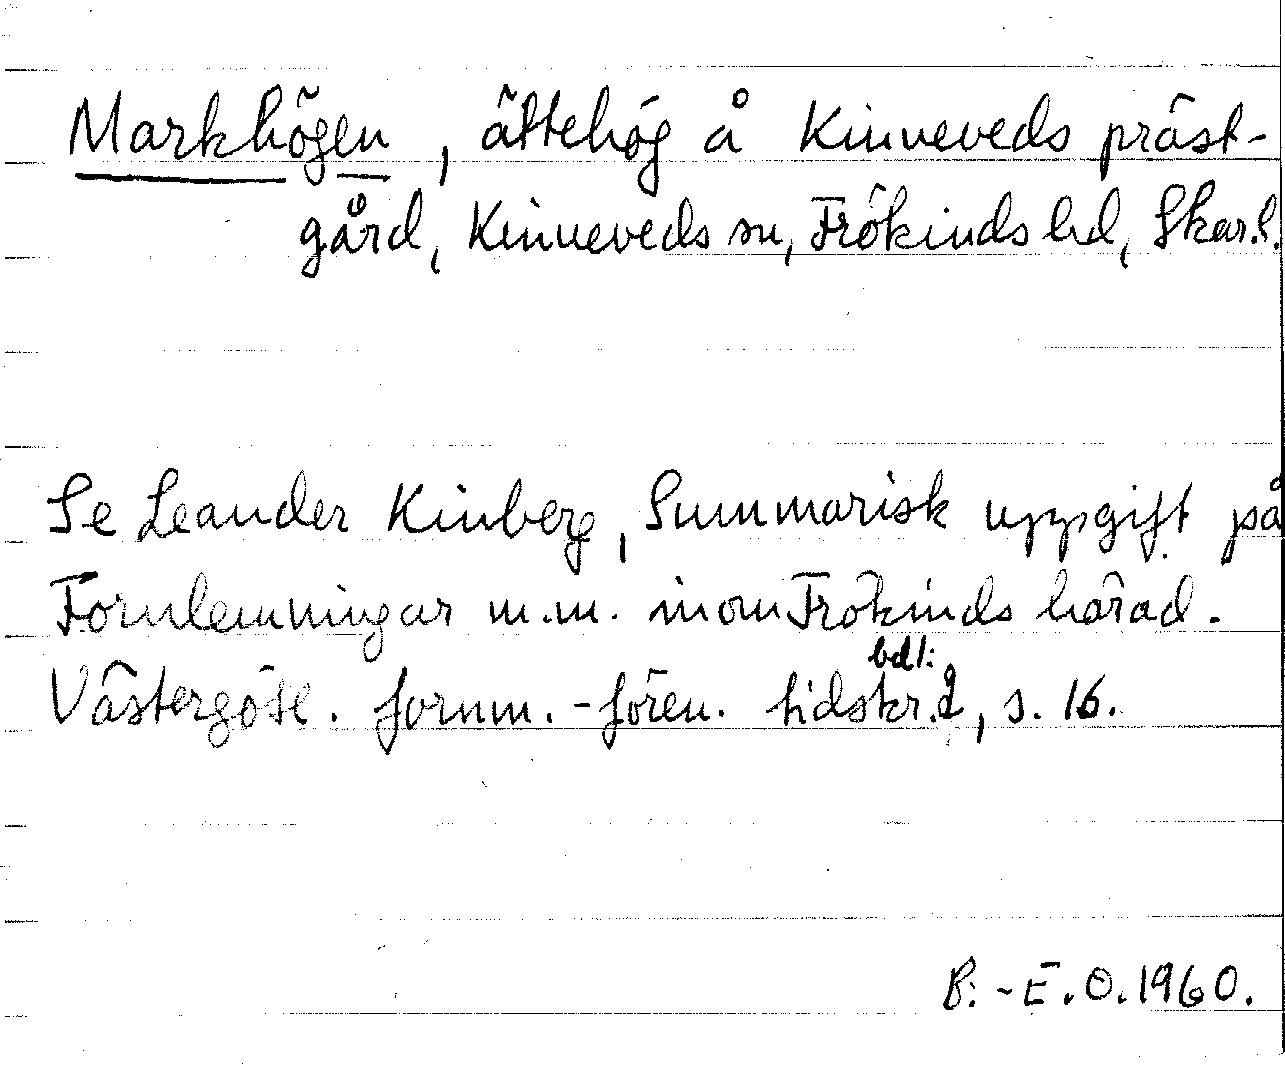 Markhögen, ättehög å Kinneveds präst-
gård, Kinneveds sn, Frökinds hd, Skar.l.
Se Leander Kinberg, Summarisk uppgift på
Fornlemningar m.m. inom Frökinds härad.
Västergötl. fornm.-fören. tidskr. bd1: 2, s. 16.
B.-E.O. 1960.